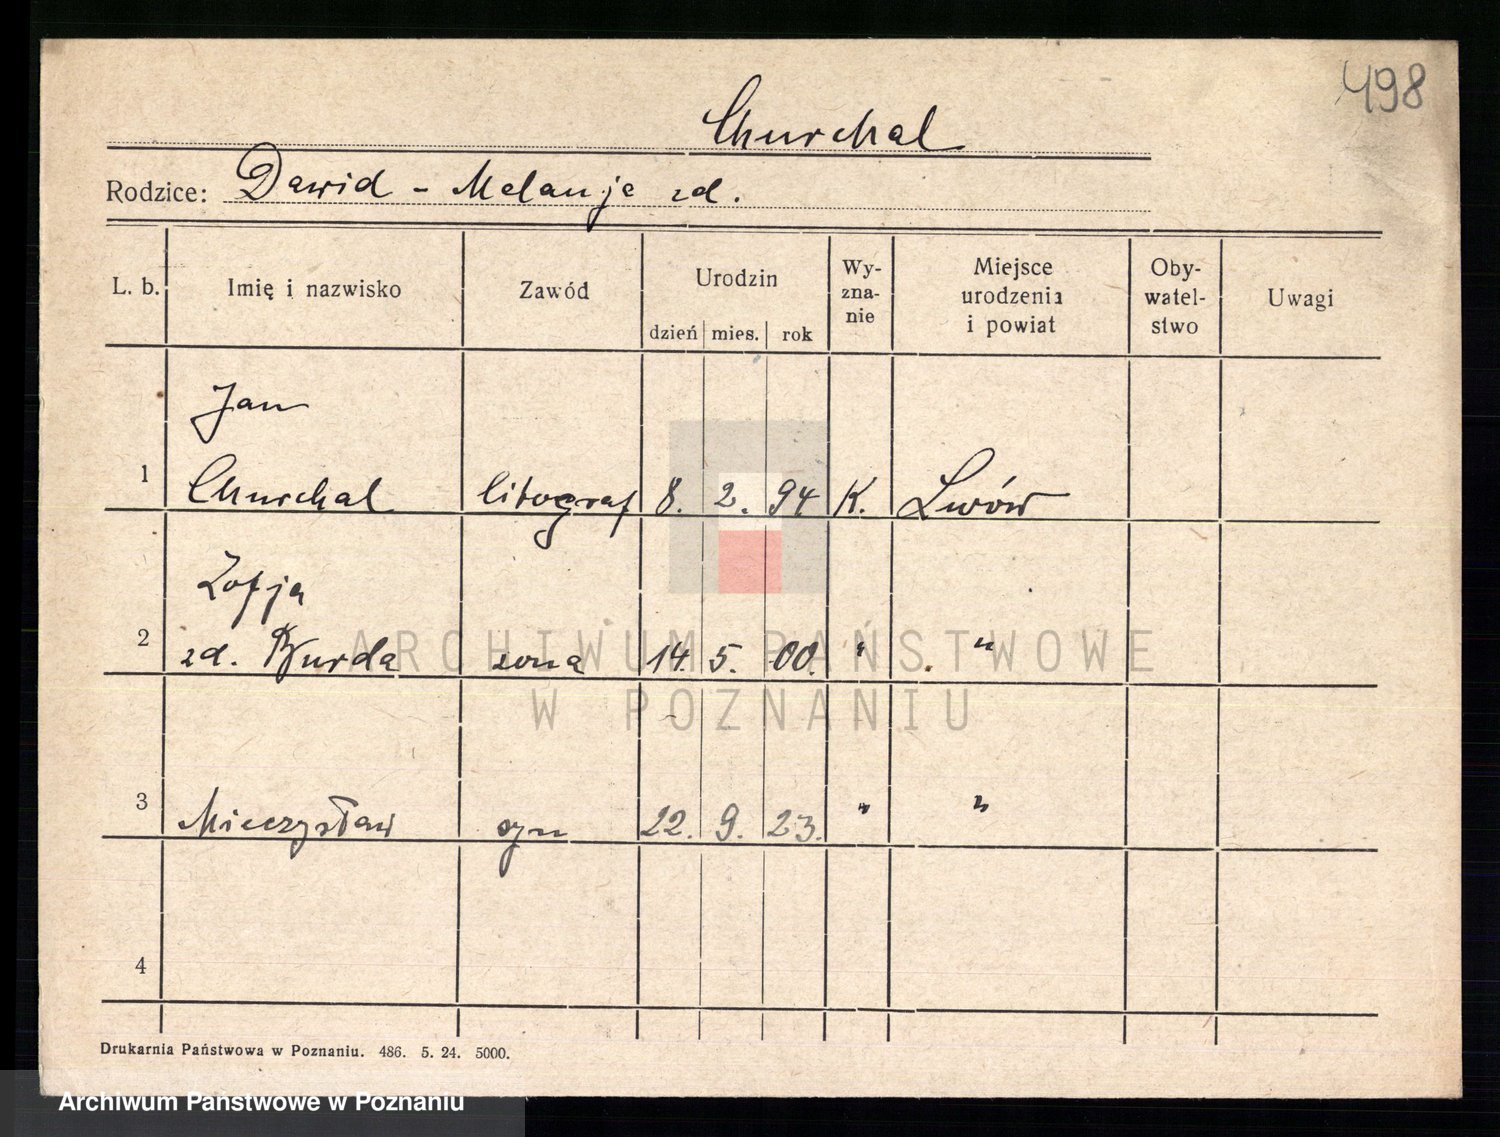 498
Churchal
Rodzice: Dawid - Melanje zd.
L. b. Imię i nazwisko Zawód Urodzin dzień mies. rok Wy-zna-nie Miejsce urodzenia i powiat Oby-watel-stwo Uwagi
Jan
1 Churchal litograf 8. 2. 94 K. Lwów
Zofja
2 zd. Burda żona 14. 5. 00. " "
3 Mieczysław syn 22. 9. 23. " "
4
Drukarnia Państwowa w Poznaniu. 486. 5. 24. 5000.
ARCHIWUM PAŃSTWOWE
W POZNANIU
Archiwum Państwowe w Poznaniu